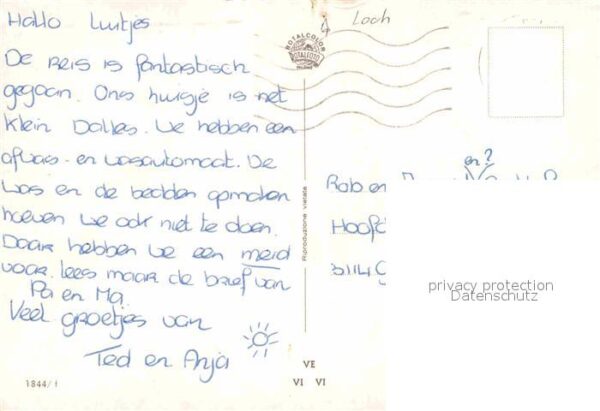 Hallo Luitjes
De Reis is fantastisch
gegaan. Ons huisje is net
klein Dalles. We hebben een
afwas- en wasautomaat. De
was en de bedden opmaken
hoeven we ook niet te doen.
Daar hebben we een meid
voor. Lees maar de brief van
Pa en Ma.
Veel groetjes van
Ted en Anja
1844/f
Riproduzione vietata
ROTALCOLOR
ROTALFOTO
VE
VI VI
Looh
en?
Rob en
Hoofd
3114 C
privacy protection
Datenschutz